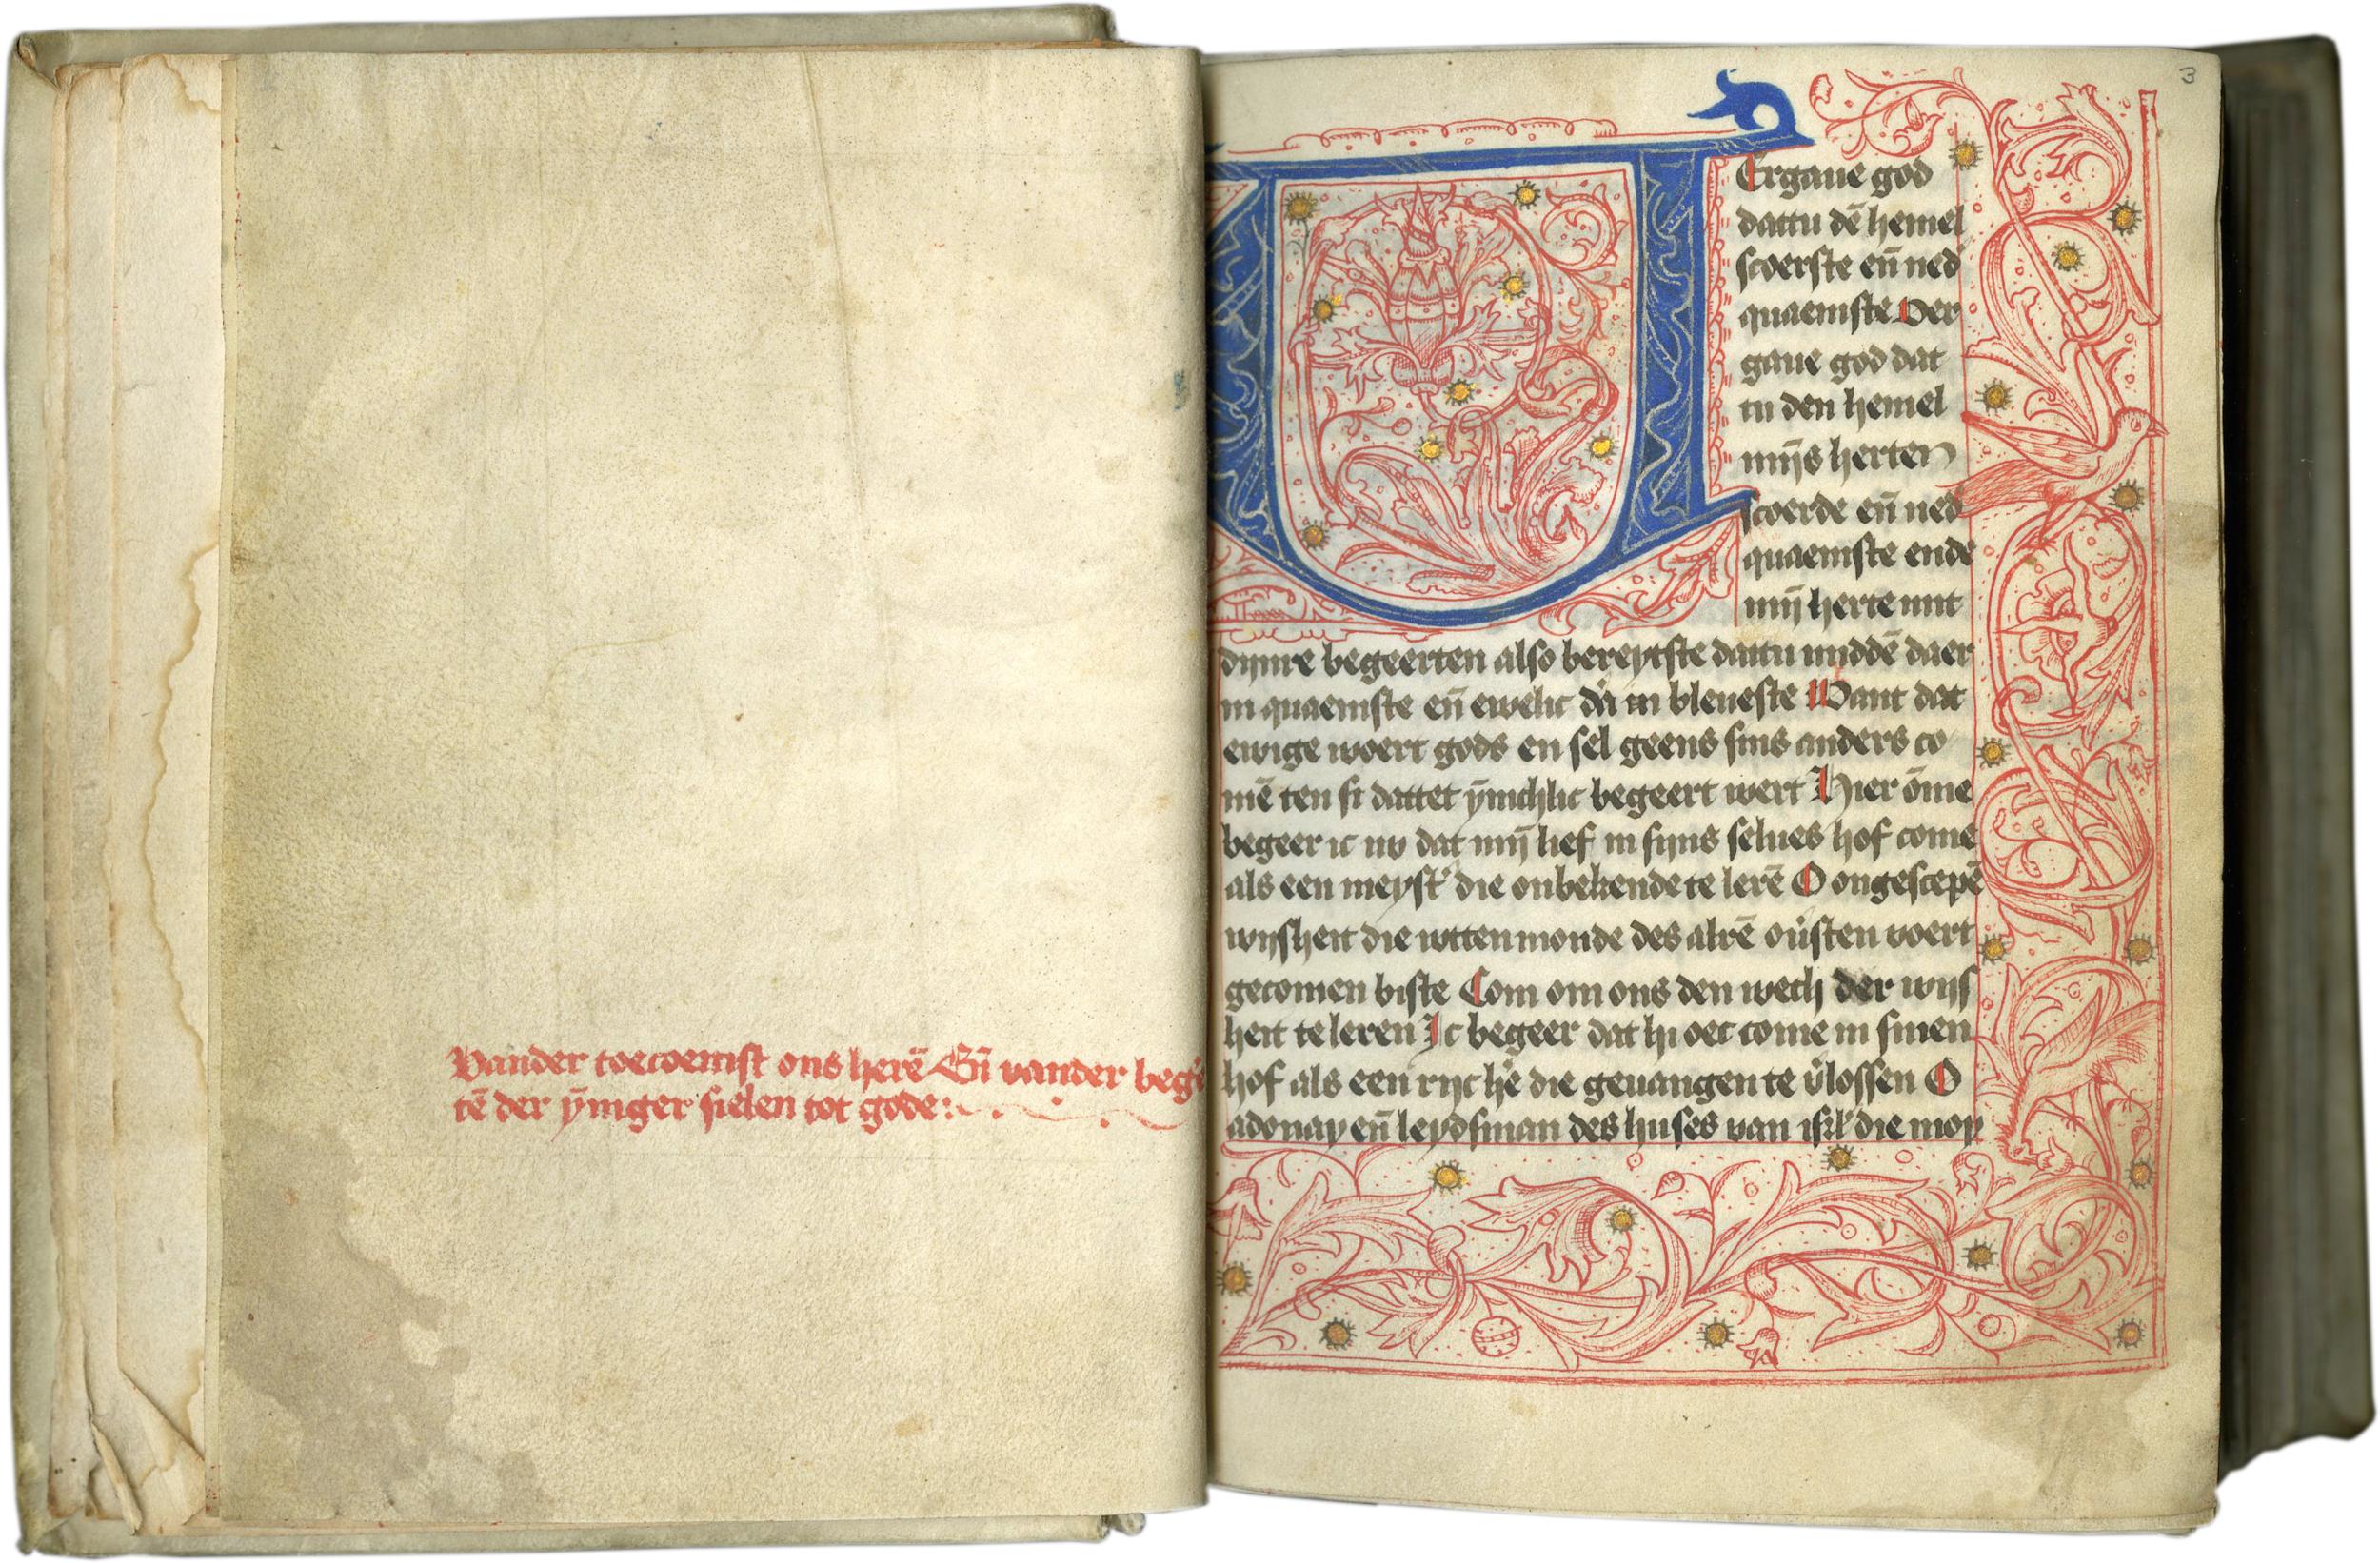 Vander toecoemst ons herē Eñ vander beg'e
tē der ȳniger sielen tot gode:
3
VErgaue god
dattu dē hemel
scoerste eñ ned
quaemste Ver
gaue god dat
tu den hemel
mijs herten
scoerde eñ ned
quaemste ende
mij̄ herte mit
dijnre begeerten also bereytste dattu middē daer
in quaemste eñ ewelic dā in bleueste Want dat
ewige woert gods en sel geens sins anders co
mē ten si dattet ȳnichlic begeert wert Hier ōme
begeer ic nv dat mij̄ lief in sijns selues hof come
als een meyst' die onbekende te lerē O ongescepē
wijsheit die wtten monde des alrē ou'sten voert
gecomen biste Com om ons den wech der wijs
heit te leren Ic begeer dat hi oec come in sinen
hof als een ryc hē die geuangen te v'lossen O
adonay eñ leydsman des huses van isrl' die moy